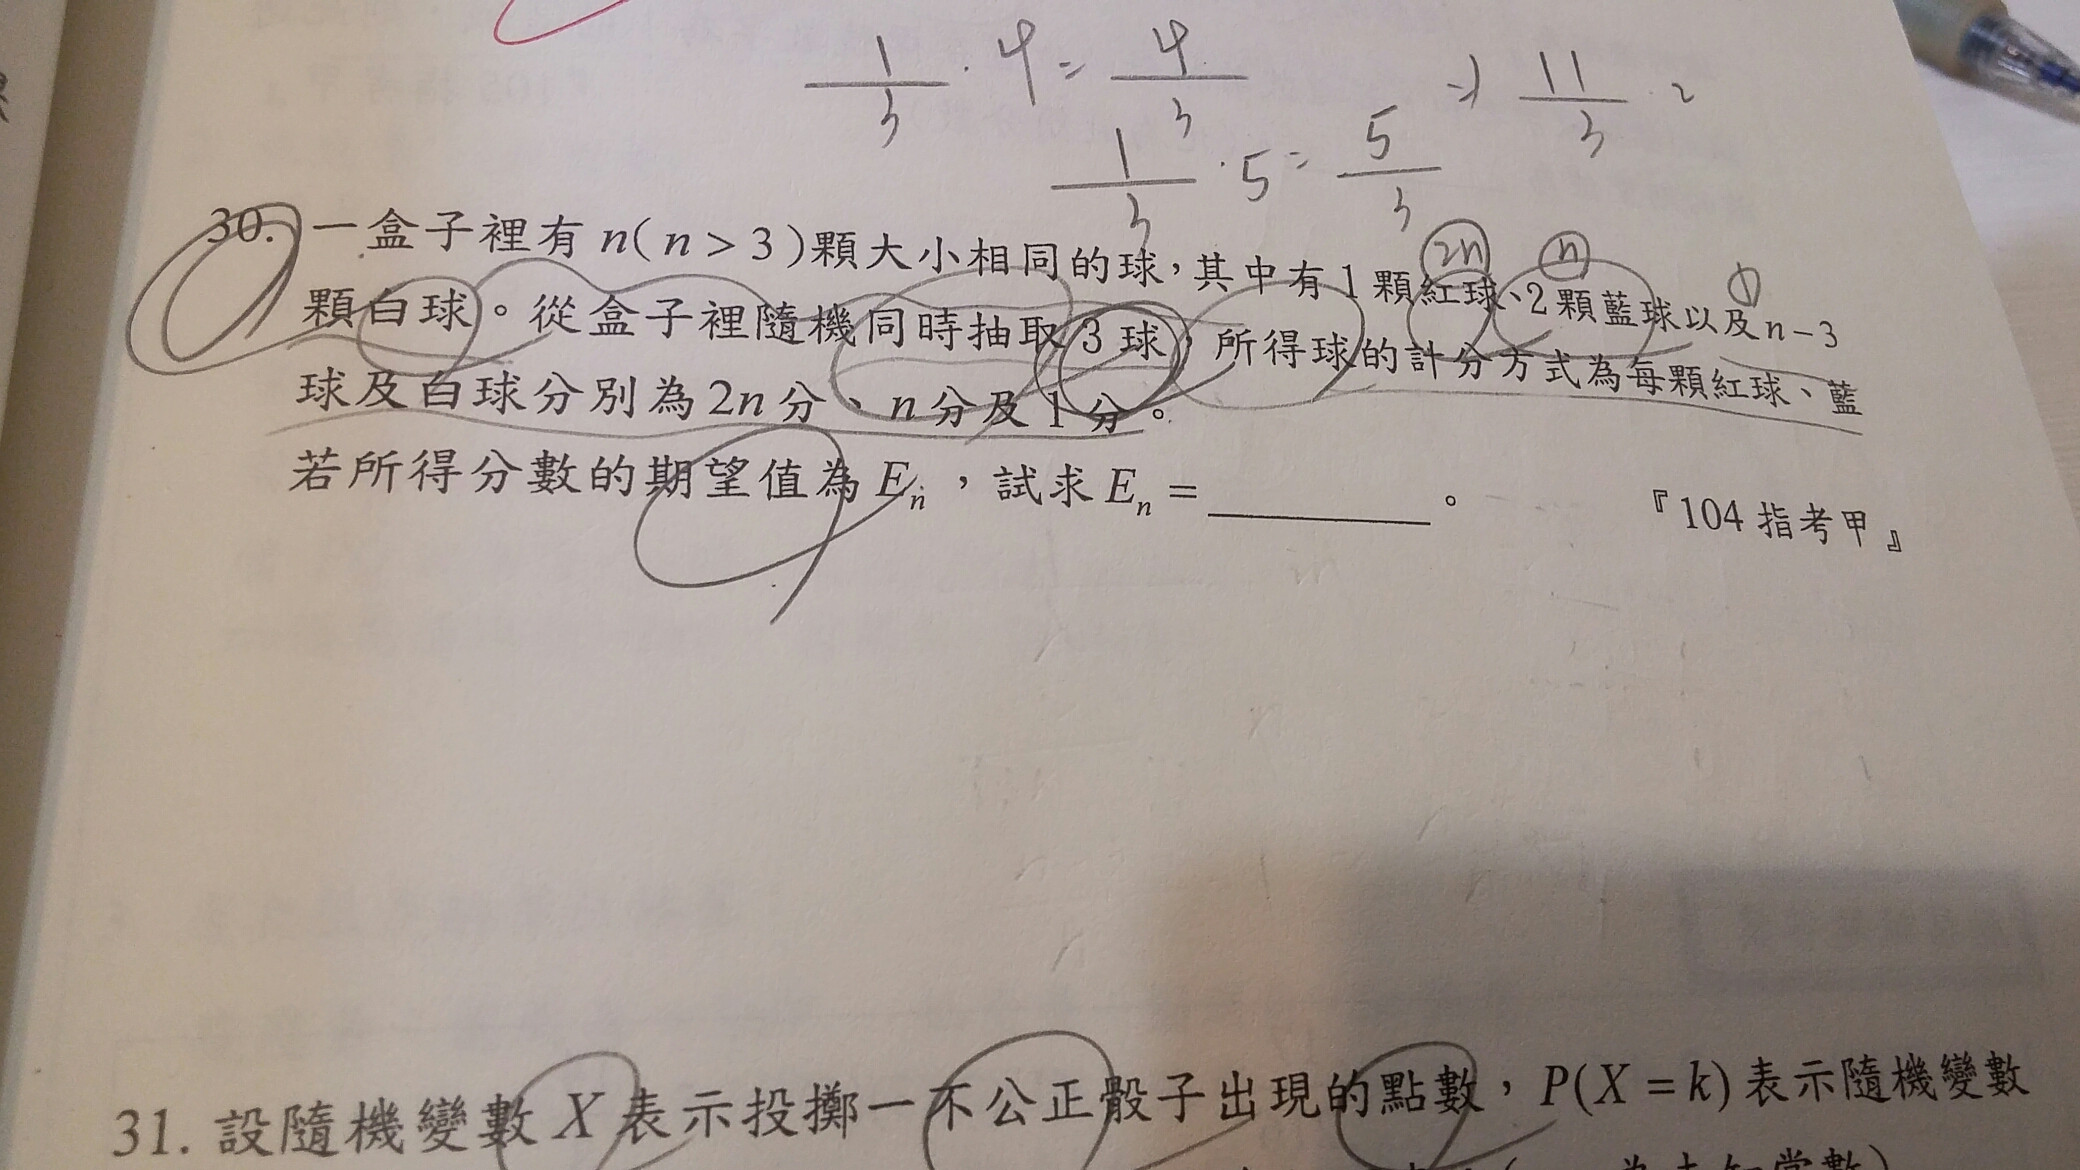 1/3 · 4 = 4/3
1/3 · 5 = 5/3 ⇒ 11/3
2n n 1
30. 一盒子裡有 n( n > 3 )顆大小相同的球，其中有 1 顆紅球、2 顆藍球以及 n－3
顆白球。從盒子裡隨機同時抽取 3 球，所得球的計分方式為每顆紅球、藍
球及白球分別為 2n 分、n 分及 1 分。
若所得分數的期望值為 Eₙ，試求 Eₙ = ________。 『104 指考甲』
31. 設隨機變數 X 表示投擲一不公正骰子出現的點數，P(X = k) 表示隨機變數